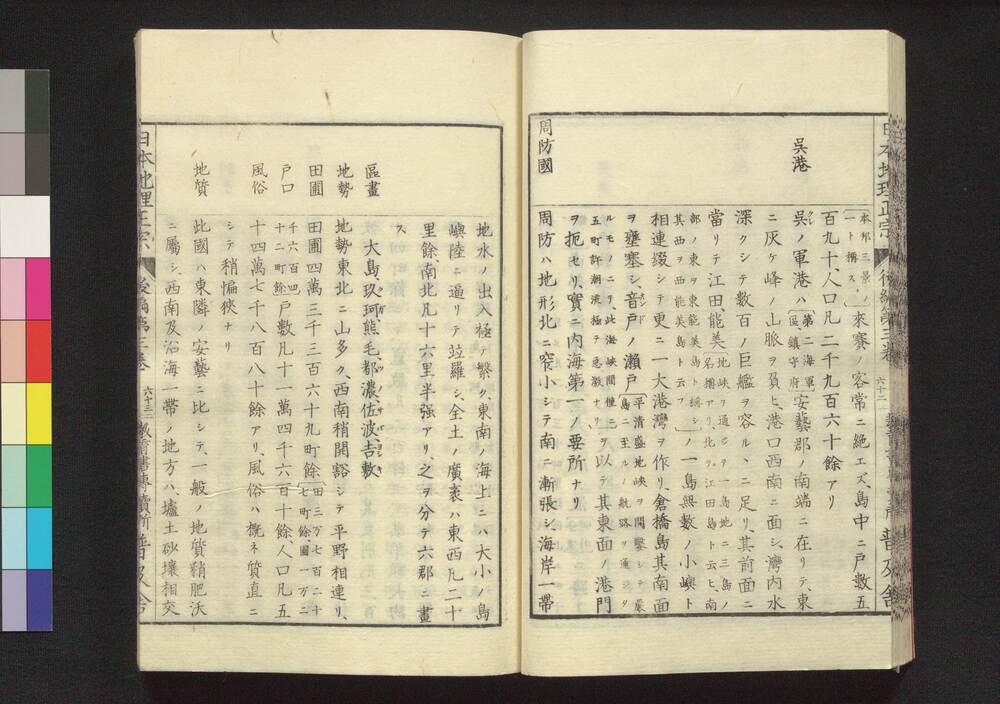 日本地理正宗
後編第三卷
六十二
普及舍
本邦三景ノ
一ト稱ス
來賽ノ客常ニ絶エズ、島中ニ戸數五
百九十、人口凡二千九百六十餘アリ
吳港
吳ノ軍港ハ
第二海軍
區鎭守府
安藝郡ノ南端ニ在リテ、東
ニ灰ケ峰ノ山脈ヲ負ヒ、港口西南ニ面シ、灣内水
深クシテ數百ノ巨艦ヲ容ルヽニ足リ、其前面ニ
當リテ江田、能美
相連綴シテ更ニ一大港灣ヲ作リ、倉橋島其南面
ノ一島無數ノ小嶼ト
ヲ壅塞シ、音戸ノ瀬戸
平清盛地峽ヲ開鑿シテ嚴
島ニ至ルノ航路ヲ通ジタ
ルモノニシ此海峽間僅三
五町許潮流極テ急激ナリ
ヲ以テ其東面ノ港門
ヲ扼セリ、實ニ内海第一ノ要所ナリ
周防國
周防ハ地形北ニ窄小シテ南ニ漸張シ、海岸一帶
地水ノ出入極テ繁ク、東南ノ海上ニハ大小ノ島
嶼陸ニ逼リテ竝羅シ、全土ノ廣袤ハ東西凡二十
里餘、南北凡十六里半强アリ、之ヲ分テ六郡ニ畫
ス
區畫
大島、玖珂、熊毛、都濃、佐波、吉敷
地勢
地勢東北ニ山多ク、西南稍開豁シテ平野相連リ、
田圃
田圃四萬三千三百六十九町餘
田三万七百二十
七町餘圃一万二
千六百四
十二町餘
戸口
戸數凡十一萬四千六百十餘、人口凡五
十四萬七千八百八十餘アリ、
風俗
風俗ハ概ネ質直ニ
シテ稍偏狹ナリ
地質
此國ハ東隣ノ安藝ニ比シテ、一般ノ地質稍肥沃
ニ屬シ、西南及沿海一帶ノ地方ハ、壚土砂壤相交
日本地理正宗
後編第三卷
六十三
教育書專賣所
普及舍